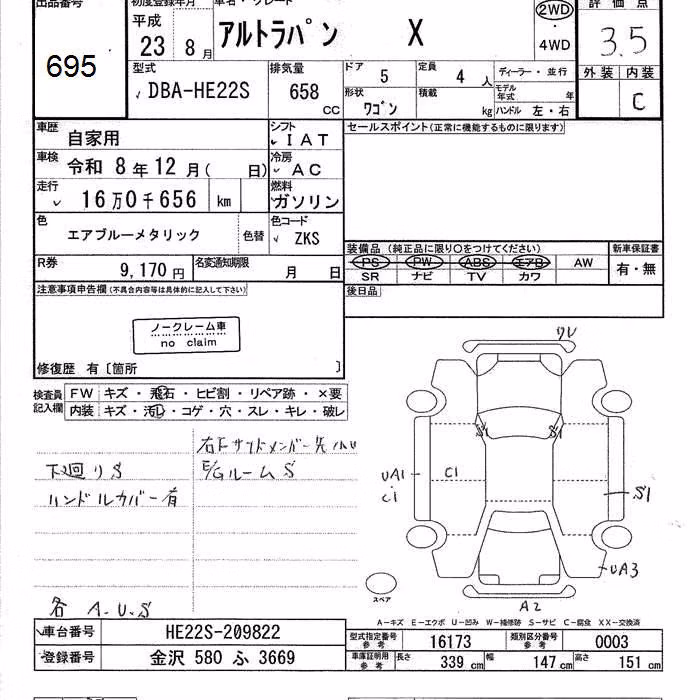 出品番号
695
初度登録年月
平成
23
8月
車名・グレード
アルトラパン X
2WD
・
4WD
評価点
3.5
外装 内装
C
型式
DBA-HE22S
排気量
658
CC
ドア
5
定員
4 人
形状
ワゴン
積載
kg
ディーラー・並行
モデル
年式
年
ハンドル 左・右
車歴
自家用
シフト
IAT
車検
令和 8年12月( 日)
冷房
AC
走行
16万0千656 km
燃料
ガソリン
色
エアブルーメタリック
色替
色コード
ZKS
R券
9,170円
名変通知期限
月 日
セールスポイント(正常に機能するものに限ります)
装備品 (純正品に限り○をつけてください)
PS PW ABS エアB AW
SR ナビ TV カワ
新車保証書
有・無
後日品
注意事項申告欄(不具合内容等は具体的に記入して下さい)
ノークレーム車
no claim
修復歴 有〔箇所 〕
検査員
記入欄
FW キズ・飛石・ヒビ割・リペア跡・×要
内装 キズ・汚し・コゲ・穴・スレ・キレ・破レ
下廻りS
ハンドルカバー有
E/GルームS
各 A.U.S
S1
S1
UA1
・
C1
C1
S1
UA3
A2
スペア
A-キズ E-エクボ U-凹み W-補修跡 S-サビ C-腐食 XX-交換済
車台番号
HE22S-209822
登録番号
金沢 580 ふ 3669
型式指定番号
参考
16173
類別区分番号
参考
0003
車庫証明用
参考
長さ 339 cm
幅 147 cm
高さ 151 cm